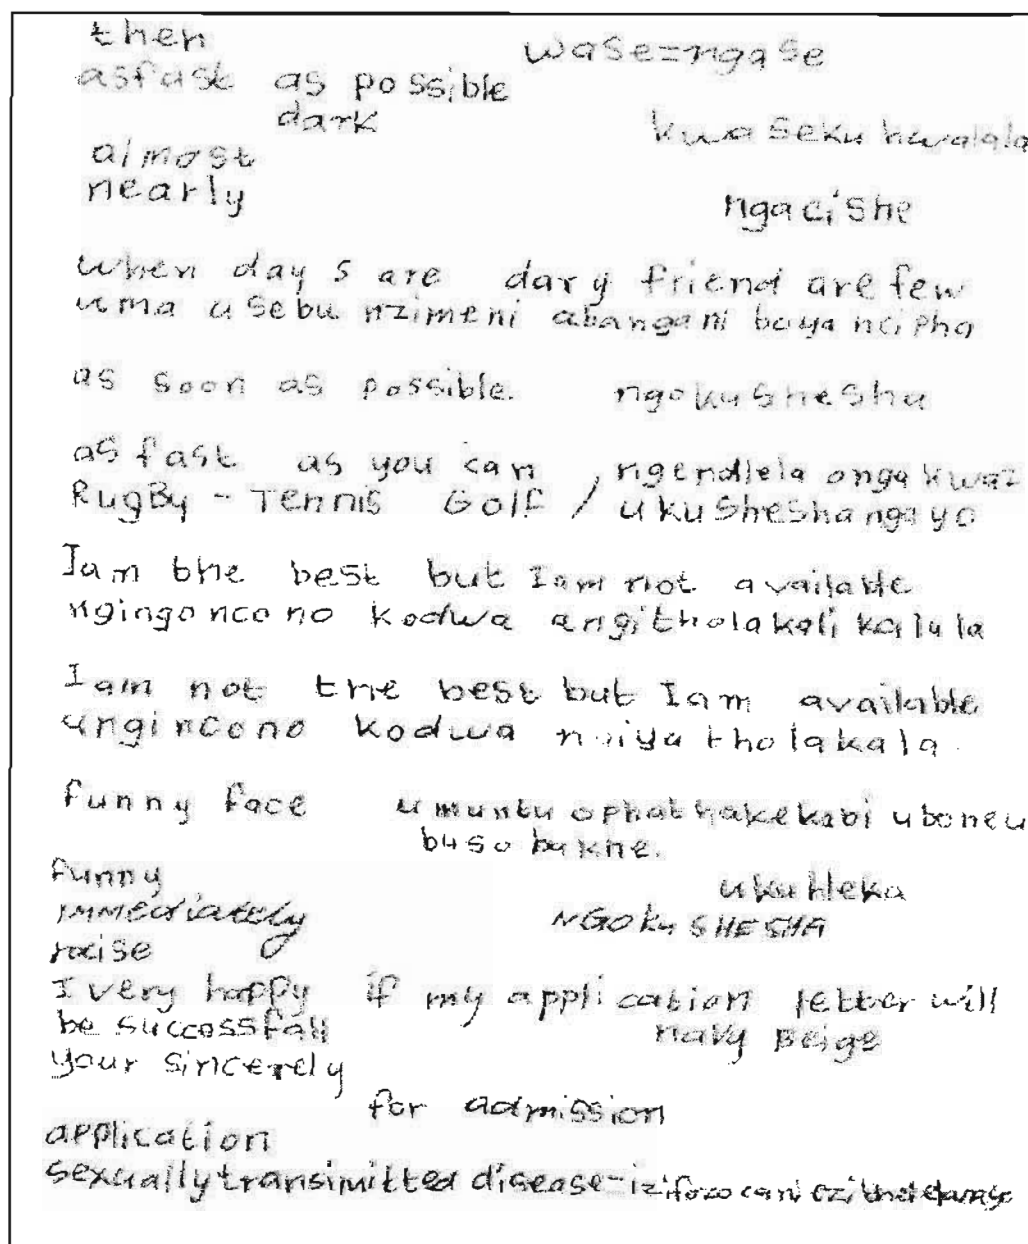 then
wase=ngase
asfast as possible
dark
kwaseku hwalala
almost
nearly
ngacishe
when day s are dary friend are few
uma usebu nzimeni abangani baya ncipha
as soon as possible. ngokushesha
as fast as you can / ngendlela onga kwaz
RugBy - Tennis Golf / ukusheshangayo
Iam the best but Iam not available
ngingoncono kodwa angitholakali kalula
Iam not the best but Iam available
ungincono kodwa ngiyatholakala.
funny face umuntu ophathakekabi uboneu
buso bakhe.
funny
ukuhleka
immediately NGOkuSHESHA
raise
I very happy if my application letter will
be successfall navy Beige
your sincerely
for admission
application
sexuallytransimitted disease-izifo